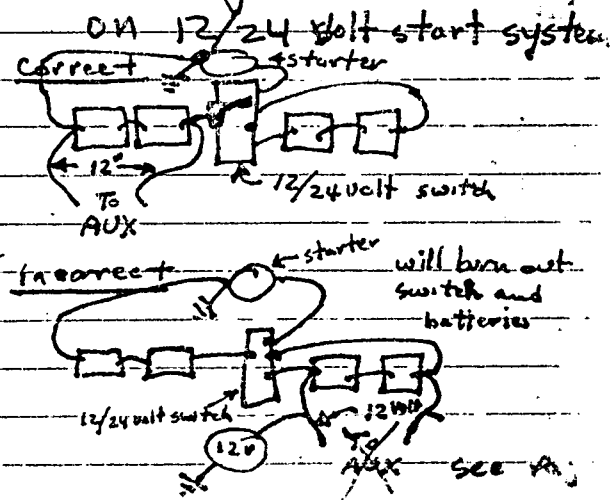 on 12/24 volt start system
correct
starter
12v
To
AUX
12/24 volt switch
Incorrect
starter
will burn out
switch and
batteries
12/24 volt switch
12 Volt
12v
To
AUX
see